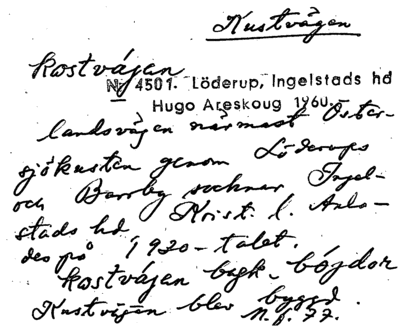 Kustvägen
kostväjan
Nr 4501. Löderup, Ingelstads hd
Hugo Areskoug 1960.
landsvägen närmast Öster-
sjökusten genom Löderups
och Borrby socknar Ingel-
stads hd Krist. l. Anla-
des på 1920-talet.
kostväjan bygk. böjdor
Kustvägen blev byggd.
N.f. 77.